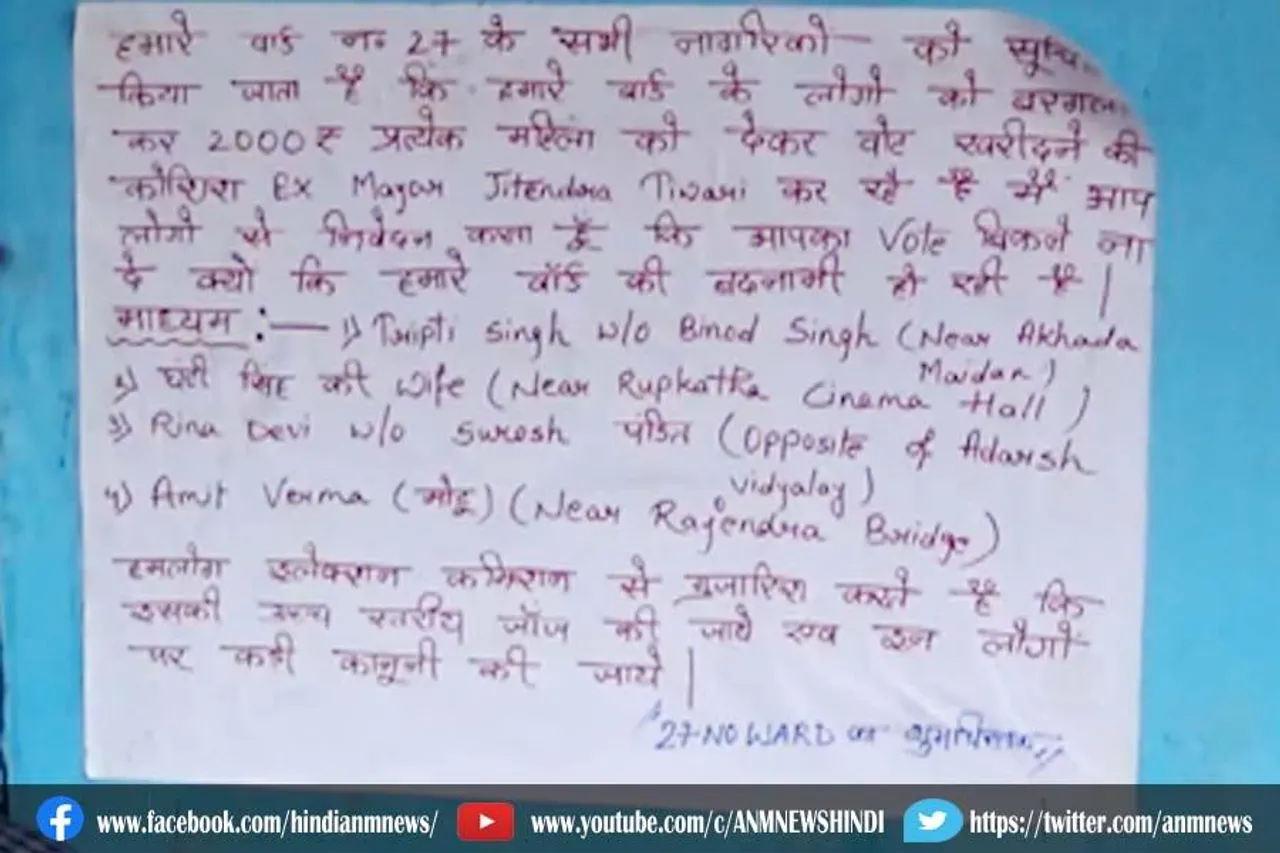 हमारे वार्ड न० 27 के सभी नागरिको को सूचि
किया जाता है कि हमारे वार्ड के लोगो को बरगला
कर 2000₹ प्रत्येक महिला को देकर वोट खरीदने की
कोशिश Ex Mayor Jitendra Tiwari कर रहे है मैं आप
लोगो से निवेदन करता हूँ कि आपका Vote बिकने ना
दे क्यो कि हमारे वॉर्ड की बदनामी हो रही है|
माध्यम :— 1) Tripti Singh w/o Binod Singh (Near Akhada Maidan)
2) घंटी सिंह की wife (Near Rupkatha Cinema Hall)
3) Rina Devi w/o Suresh पंडित (Opposite of Adarsh Vidyalay)
4) Amit Verma (मोटू) (Near Rajendra Bridge)
हमलोग इलेक्शन कमिशन से गुजारिश करते है कि
इसकी उच्च स्तरीय जाँच की जाये एव इन लोगो
पर कडी कानूनी की जाये|
"27-NO WARD का शुभचिन्तक"
www.facebook.com/hindianmnews/ www.youtube.com/c/ANMNEWSHINDI https://twitter.com/anmnews